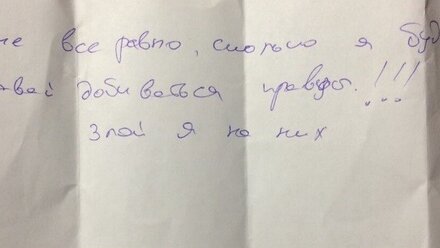 не все равно, сколько я буд
вай добиваться правды.!!!
Злой я на них